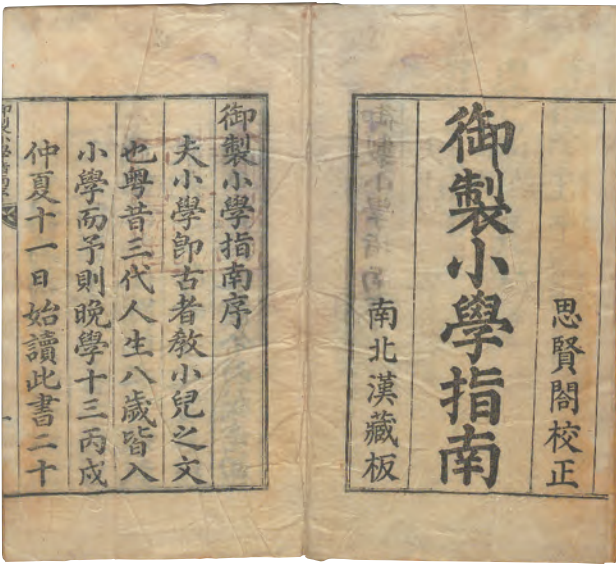 思賢閤校正
御製小學指南
南北漢藏板
御製小學指南序
夫小學卽古者敎小兒之文
也粤昔三代人生八歲皆入
小學而予則晩學十三丙戌
仲夏十一日始讀此書二十